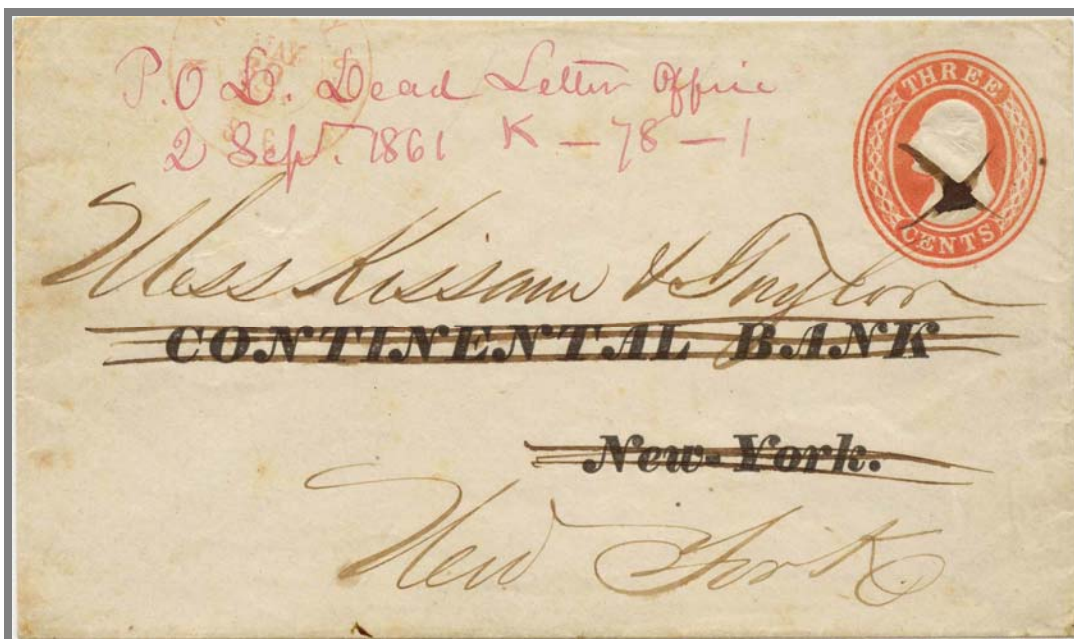 P.O D. Dead Letter Office
2 Sept. 1861 K – 78 – 1
THREE
CENTS
Mess Kissam & Taylor
CONTINENTAL BANK
New-York.
New York